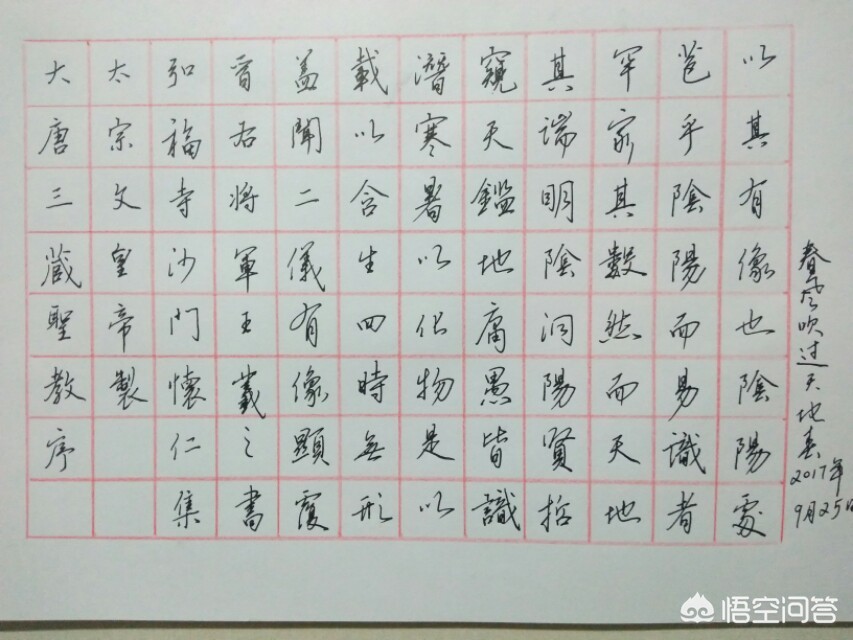 大唐三藏聖教序
太宗文皇帝製
弘福寺沙門懷仁集
晉右將軍王羲之書
盖聞二儀有像顯覆
載以含生四時無形
潛寒暑以化物是以
窺天鑑地庸愚皆識
其端明陰洞陽賢哲
罕窮其數然而天地
苞乎陰陽而易識者
以其有像也陰陽處
春风吹过天地春
2017年
9月25日
悟空问答